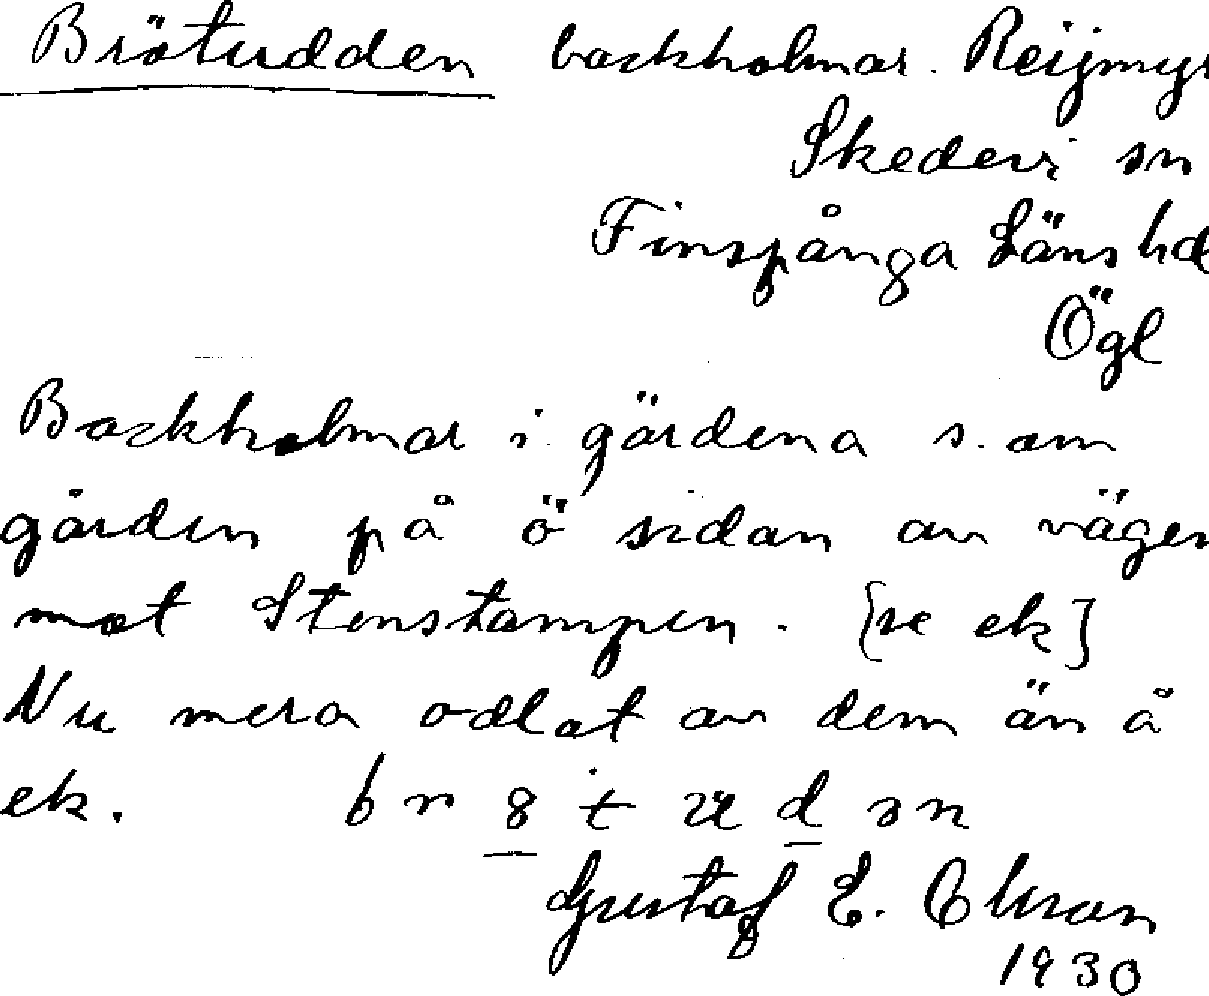 Brötudden backholmar. Reijmyr
Skedevi sn
Finspånga Läns hd
Ögl
Backholmar i gärdena s. om
gården på ö sidan av vägen
mot Stenstampen. [se ek]
Nu mera odlat av dem än å
ek. b r 8 t u d ə n
Gustaf E.
1930